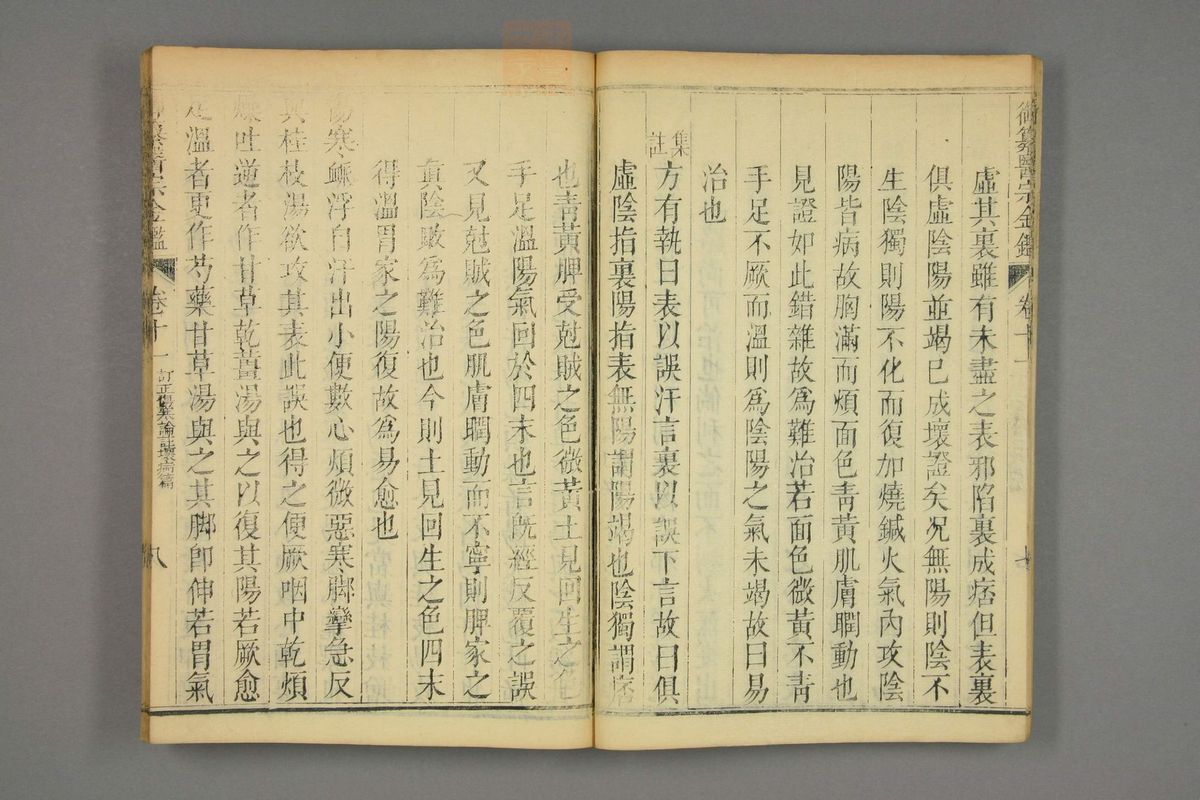 御纂醫宗金鑑 卷十一
虛其裏雖有未盡之表邪陷裏成痞但表裏
俱虛陰陽並竭已成壞證矣況無陽則陰不
生陰獨則陽不化而復加燒鍼火氣內攻陰
陽皆病故胸滿而煩面色青黃肌膚瞤動也
見證如此錯雜故為難治若面色微黃不青
手足不厥而溫則為陰陽之氣未竭故曰易
治也
集註
方有執曰表以誤汗言裏以誤下言故曰俱
虛陰指裏陽指表無陽謂陽竭也陰獨謂
也青黃脾受尅賊之色微黃土見回生之色
手足溫陽氣回於四末也言既經反覆之誤
又見尅賊之色肌膚瞤動而不寧則脾家之
真陰敗為難治也今則土見回生之色四末
得溫胃家之陽復故為易愈也
傷寒脈浮自汗出小便數心煩微惡寒脚攣急反
與桂枝湯欲攻其表此誤也得之便厥咽中乾煩
燥吐逆者作甘草乾薑湯與之以復其陽若厥愈
足溫者更作芍藥甘草湯與之其脚即伸若胃氣
御纂醫宗金鑑 卷十一 訂正傷寒論註壞病篇 八